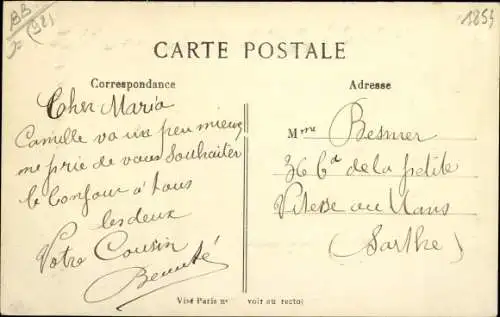 BB
(92)
1854
CARTE POSTALE
Correspondance
Adresse
Cher Maria
Camille va un peu mieux
me prie de vous Souhaiter
le bonjour a tous
les deux
Votre Cousin
Mme Besnier
36 bd de la petite
Vitesse au Mans
(Sarthe)
Visé Paris no voir au recto